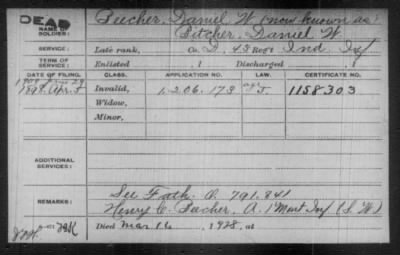 DEAD
NAME OF SOLDIER:
Peecher, Daniel W. (now known as)
Pitcher, Daniel W.
SERVICE:
Late rank, Co D, 43 Reg't Ind. Inf
TERM OF SERVICE:
Enlisted , 1 Discharged , 1
DATE OF FILING. CLASS. APPLICATION NO. LAW. CERTIFICATE NO.
1898 Apr. Invalid, 1.206.173 1158303
Widow,
Minor,
ADDITIONAL SERVICES:
REMARKS:
See Fath. O. 791.841
Henry C. A. 1" Inf (S. W.)
Died Mar. 16, 1928, at